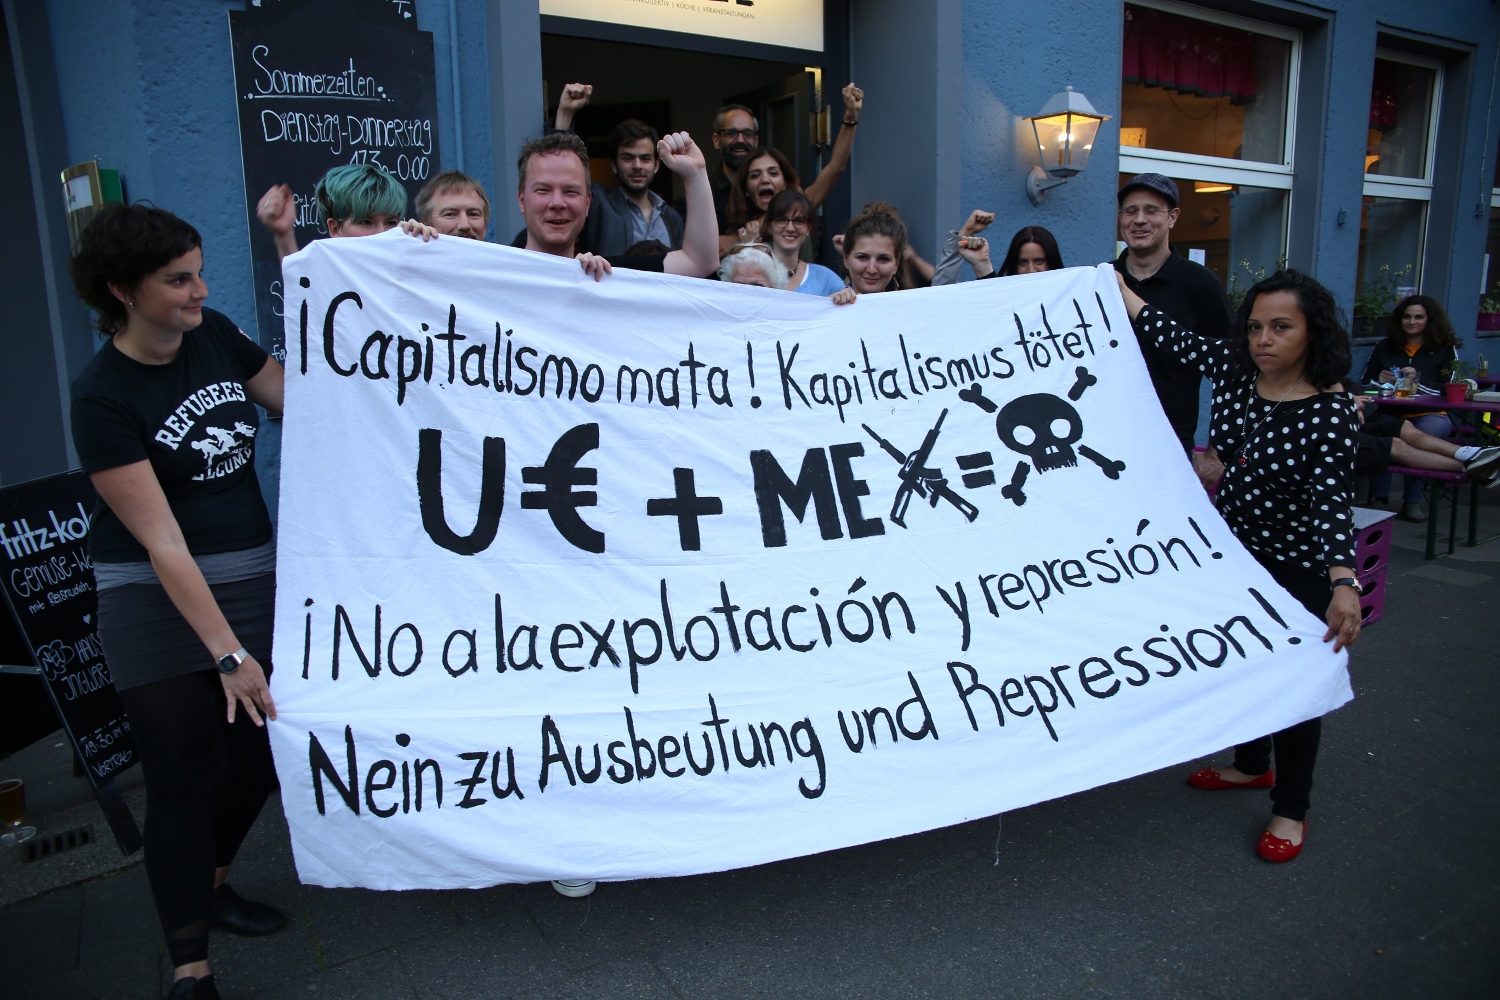 KÜCHE | VERANSTALTUNGEN
Sommerzeiten
Dienstag-Donnerstag
17.30-0.00
¡Capitalismo mata! Kapitalismus tötet!
U€ + MEX =
¡No a la explotación y represión!
Nein zu Ausbeutung und Repression!
REFUGEES
fritz-kol
Gemüse-W
mit Reisnudeln
19:30 IM
VORTRAG